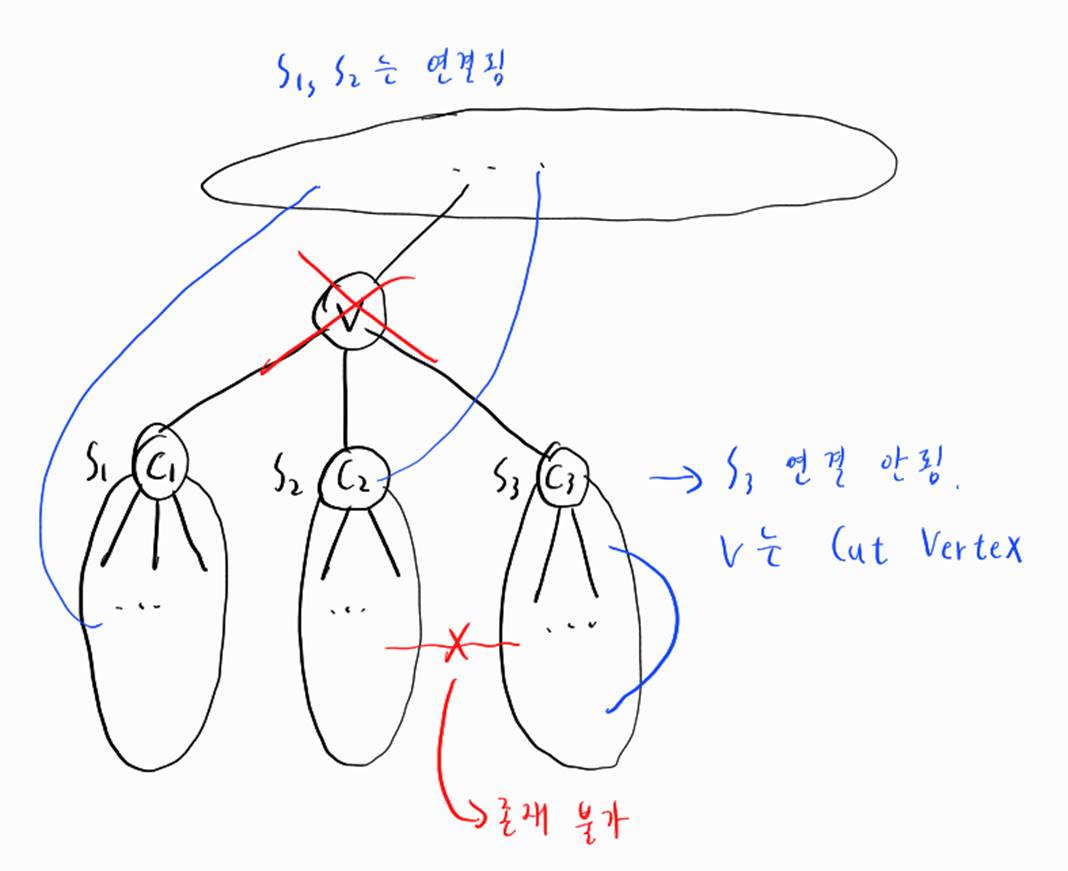 S1, S2는 연결됨
V
S1 C1
S2 C2
S3 C3
→ S3 연결 안됨.
V는 Cut Vertex
X
존재 불가